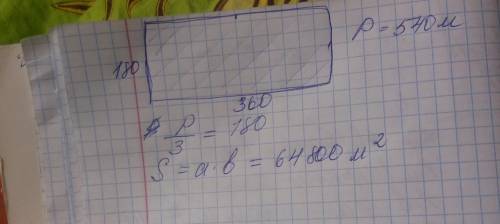 P = 540 м
180
360
P/3 = 180
S = a · b = 64800 м²